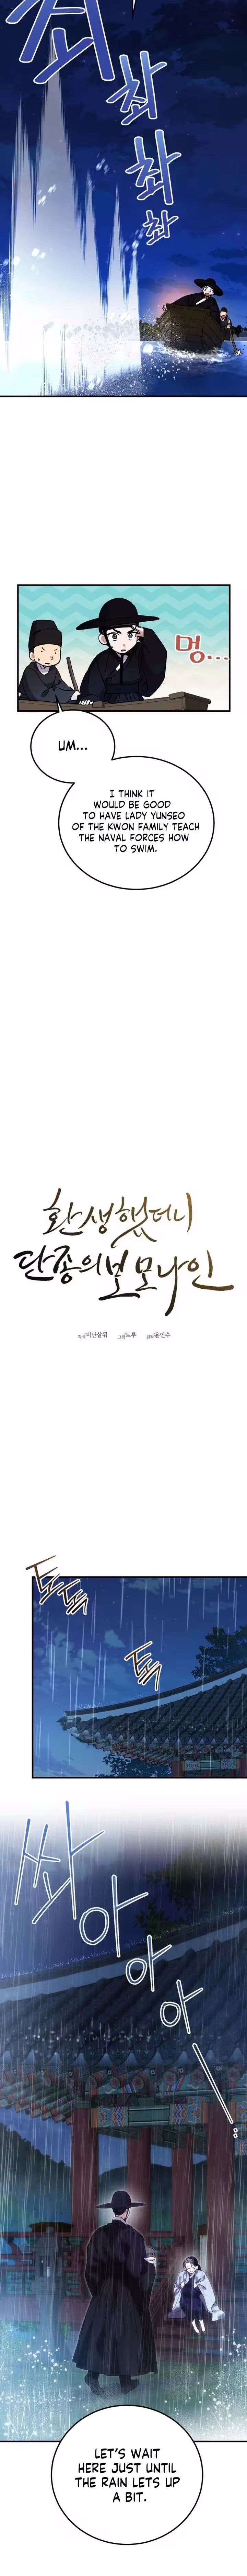 촤
촤
촤
촤
멍...
UM...
I THINK IT
WOULD BE GOOD
TO HAVE LADY YUNSEO
OF THE KWON FAMILY TEACH
THE NAVAL FORCES HOW
TO SWIM.
환생했더니
단종의 보모나인
각색 비단살쾡
그림 트루
원작 윤인수
토독
토독
쏴아아아아
LET'S WAIT
HERE JUST UNTIL
THE RAIN LETS UP
A BIT.